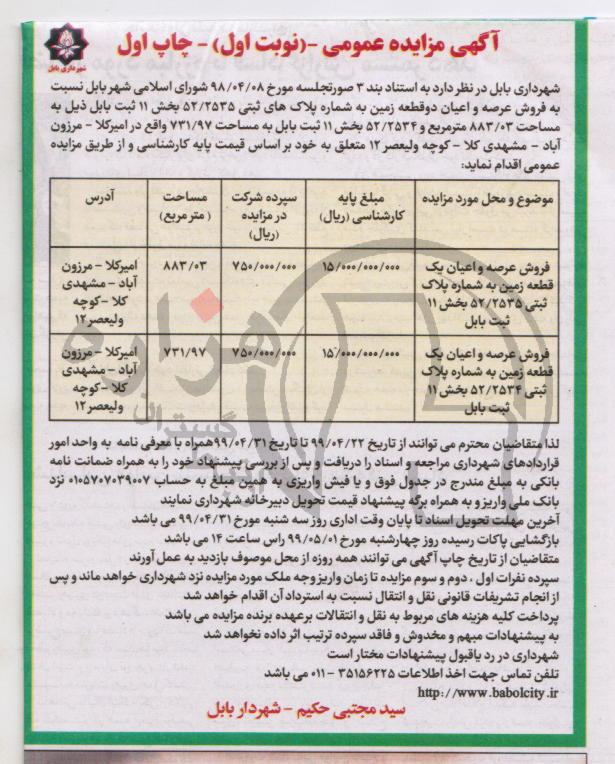 آگهی مزایده عمومی -(نوبت اول) - چاپ اول
شهرداری بابل
شهرداری بابل در نظر دارد به استناد بند ۳ صورتجلسه مورخ ۹۸/۰۴/۰۸ شورای اسلامی شهر بابل نسبت
به فروش عرصه و اعیان دوقطعه زمین به شماره پلاک های ثبتی ۵۲/۲۵۳۵ بخش ۱۱ ثبت بابل ذیل به
مساحت ۸۸۳/۰۳ مترمربع و ۵۲/۲۵۳۴ بخش ۱۱ ثبت بابل به مساحت ۷۳۱/۹۷ واقع در امیرکلا - مرزون
آباد - مشهدی کلا - کوچه ولیعصر۱۲ متعلق به خود بر اساس قیمت پایه کارشناسی و از طریق مزایده
عمومی اقدام نماید:
موضوع و محل مورد مزایده | مبلغ پایه کارشناسی (ریال) | سپرده شرکت در مزایده (ریال) | مساحت (مترمربع) | آدرس
فروش عرصه و اعیان یک قطعه زمین به شماره پلاک ثبتی ۵۲/۲۵۳۵ بخش ۱۱ ثبت بابل | ۱۵/۰۰۰/۰۰۰/۰۰۰ | ۷۵۰/۰۰۰/۰۰۰ | ۸۸۳/۰۳ | امیرکلا - مرزون آباد - مشهدی کلا -کوچه ولیعصر۱۲
فروش عرصه و اعیان یک قطعه زمین به شماره پلاک ثبتی ۵۲/۲۵۳۴ بخش ۱۱ ثبت بابل | ۱۵/۰۰۰/۰۰۰/۰۰۰ | ۷۵۰/۰۰۰/۰۰۰ | ۷۳۱/۹۷ | امیرکلا - مرزون آباد - مشهدی کلا -کوچه ولیعصر۱۲
هزاره
گستران
لذا متقاضیان محترم می توانند از تاریخ ۹۹/۰۴/۲۲ تا تاریخ ۹۹/۰۴/۳۱همراه با معرفی نامه به واحد امور
قراردادهای شهرداری مراجعه و اسناد را دریافت و پس از بررسی پیشنهاد خود را به همراه ضمانت نامه
بانکی به مبلغ مندرج در جدول فوق و یا فیش واریزی به همین مبلغ به حساب ۰۱۰۵۷۰۷۰۳۹۰۰۷ نزد
بانک ملی واریز و به همراه برگه پیشنهاد قیمت تحویل دبیرخانه شهرداری نمایند
آخرین مهلت تحویل اسناد تا پایان وقت اداری روز سه شنبه مورخ ۹۹/۰۴/۳۱ می باشد
بازگشایی پاکات رسیده روز چهارشنبه مورخ ۹۹/۰۵/۰۱ راس ساعت ۱۴ می باشد
متقاضیان از تاریخ چاپ آگهی می توانند همه روزه از محل موصوف بازدید به عمل آورند
سپرده نفرات اول ، دوم و سوم مزایده تا زمان واریز وجه ملک مورد مزایده نزد شهرداری خواهد ماند و پس
از انجام تشریفات قانونی نقل و انتقال نسبت به استرداد آن اقدام خواهد شد
پرداخت کلیه هزینه های مربوط به نقل و انتقالات برعهده برنده مزایده می باشد
به پیشنهادات مبهم و مخدوش و فاقد سپرده ترتیب اثر داده نخواهد شد
شهرداری در رد یاقبول پیشنهادات مختار است
تلفن تماس جهت اخذ اطلاعات ۳۵۱۵۶۲۲۵ -۰۱۱ می باشد
http://www.babolcity.ir
سید مجتبی حکیم - شهردار بابل